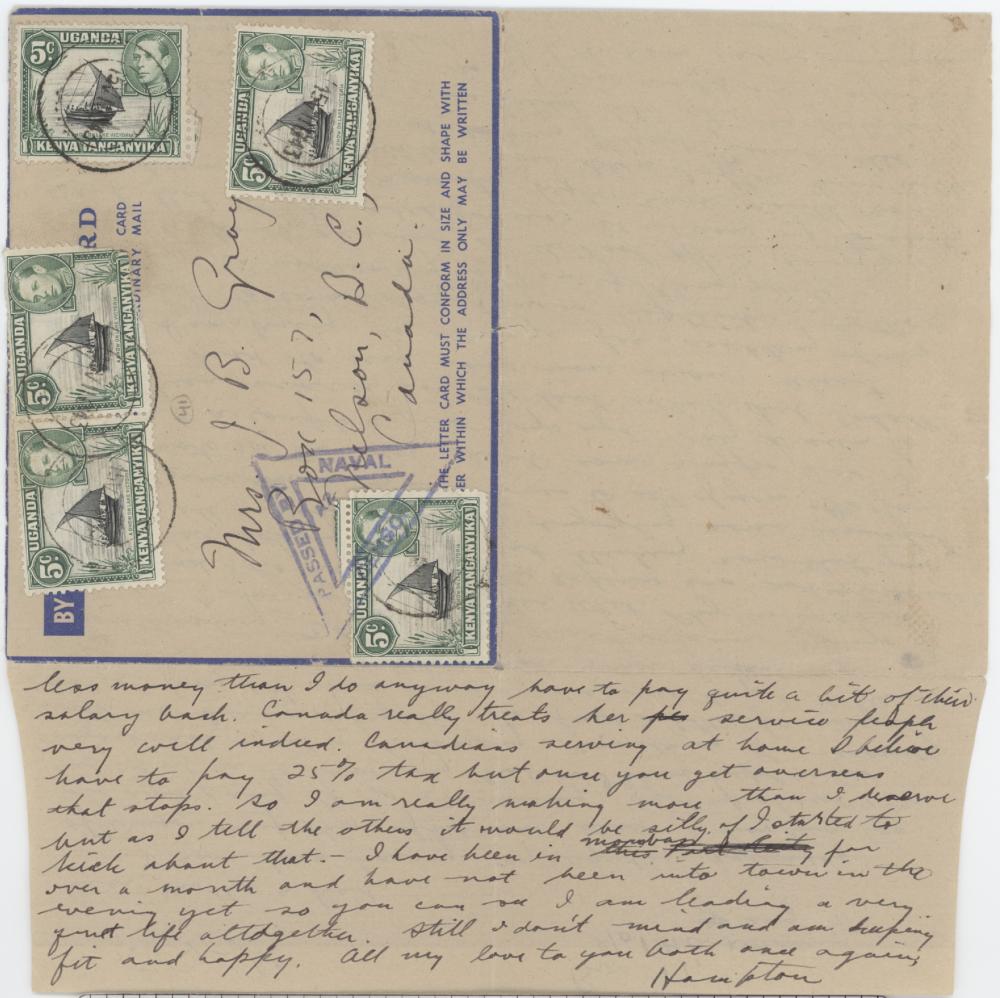 5c UGANDA
KENYA TANGANYIKA
UGANDA
5c
KENYA TANGANYIKA
UGANDA
5c
KENYA TANGANYIKA
UGANDA
5c
KENYA TANGANYIKA
UGANDA
5c
KENYA TANGANYIKA
RD
CARD
DINARY MAIL
BY
41
Mrs. J. B. Gray
Box 157,
Nelson, B. C.,
Canada.
PASSED
NAVAL
THE LETTER CARD MUST CONFORM IN SIZE AND SHAPE WITH
ER WITHIN WHICH THE ADDRESS ONLY MAY BE WRITTEN
less money than I do anyway have to pay quite a bit of their
salary back. Canada really treats her service people
very well indeed. Canadians serving at home I believe
have to pay 25% tax but once you get overseas
that stops. So I am really making more than I deserve
but as I tell the others it would be silly if I started to
kick about that. - I have been in mombasa for
over a month and have not been into town in the
evening yet so you can see I am leading a very
quiet life altogether. Still I don't mind and am keeping
fit and happy. All my love to you both once again,
Hampton